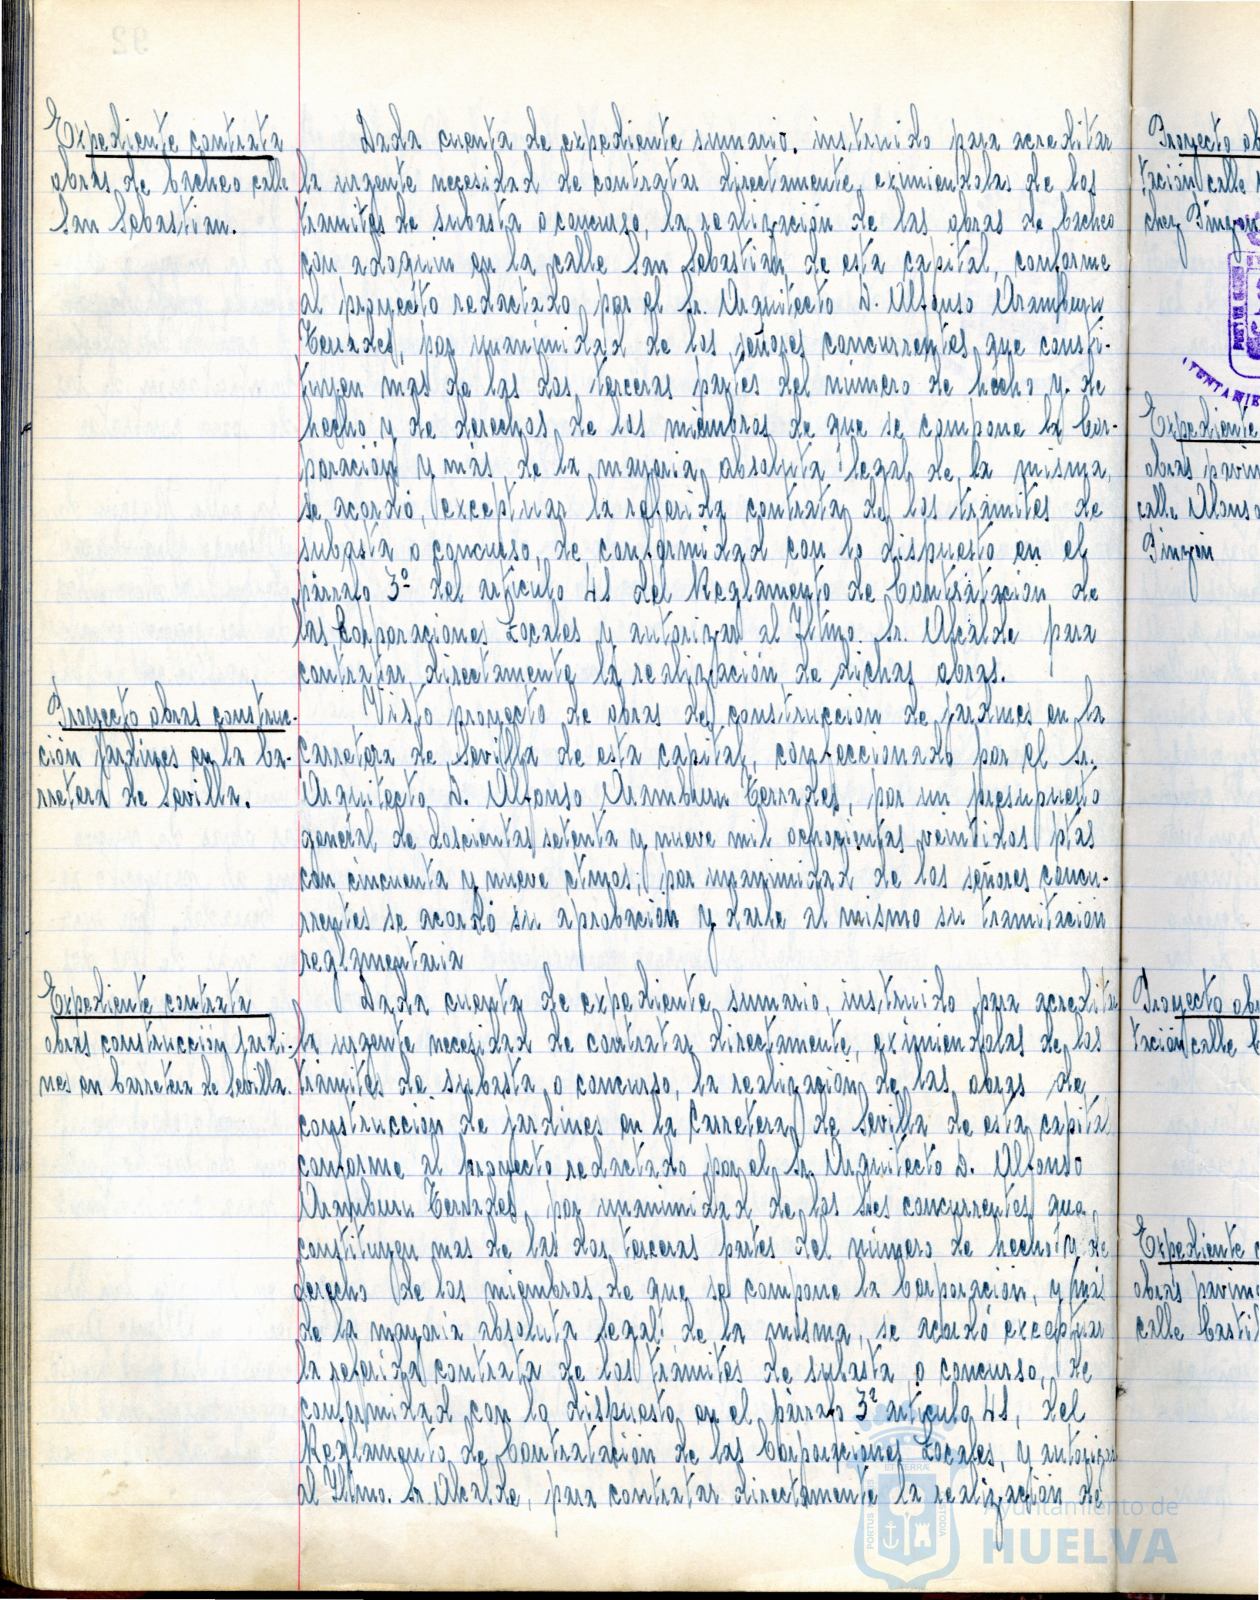 Expediente contrata
obras de bacheo calle
San Sebastian.
Dada cuenta de expediente sumario. instruido para acreditar
la urgente necesidad de contratar directamente, eximiendolas de los
tramites de subasta o concurso, la realización de las obras de bacheo
con adoquin en la calle San Sebastian, de esta capital, conforme
al proyecto redactado por el Sr. Arquitecto D. Alfonso Aramburu
Terrades, por unanimidad de los señores concurrentes que consti-
tuyen mas de las dos terceras partes del número de hecho y de
hecho y de derechos de los miembros de que se compone la Cor-
poración y más de la mayoria absoluta legal de la misma,
se acordó, exceptuar la referida contrata de los trámites de
subasta o concurso, de conformidad con lo dispuesto en el
párrafo 3º del artículo 41 del Reglamento de Contratación de
las Corporaciones Locales y autorizar al Iltmo. Sr. Alcalde para
contratar directamente la realización de dichas obras.
Proyecto obras construc-
ción jardines en la Ca-
rretera de Sevilla.
Visto proyecto de obras de construcción de jardines en la
Carretera de Sevilla de esta capital, confeccionado por el Sr.
Arquitecto D. Alfonso Aramburu Terrades, por un presupuesto
general de doscientas setenta y nueve mil ochocientas veintidos ptas
con cincuenta y nueve ctmos; por unanimidad de los señores concu-
rrentes se acordó su aprobación y darle al mismo su tramitación
reglamentaria
Expediente contrata
obras construcción jardi-
nes en Carretera de Sevilla.
Dada cuenta de expediente sumario, instruido para acreditar
la urgente necesidad de contratar directamente, eximiendolas de los
trámites de subasta o concurso, la realización de las obras de
construcción de jardines en la Carretera de Sevilla de esta capital
conforme al proyecto redactado por el Sr. Arquitecto D. Alfonso
Aramburu Terrades, por unanimidad de los sres concurrentes que
constituyen mas de las dos terceras partes del número de hecho y de
derecho de los miembros de que se compone la Corporación, y más
de la mayoria absoluta legal de la misma, se acordó exceptuar
la referida contrata de los trámites de subasta o concurso, de
conformidad con lo dispuesto en el párrafo 3º artículo 41, del
Reglamento de Contratación de las Corporaciones Locales, y autorizar
al Iltmo. Sr. Alcalde, para contratar directamente la realización de
Proyecto ob
tación calle
chez Pinzón
Expediente
obras pavim
calle Alonso
Pinzón
Proyecto obr
tación calle C
Expediente c
obras pavime
calle Castil
Ayuntamiento de
HUELVA